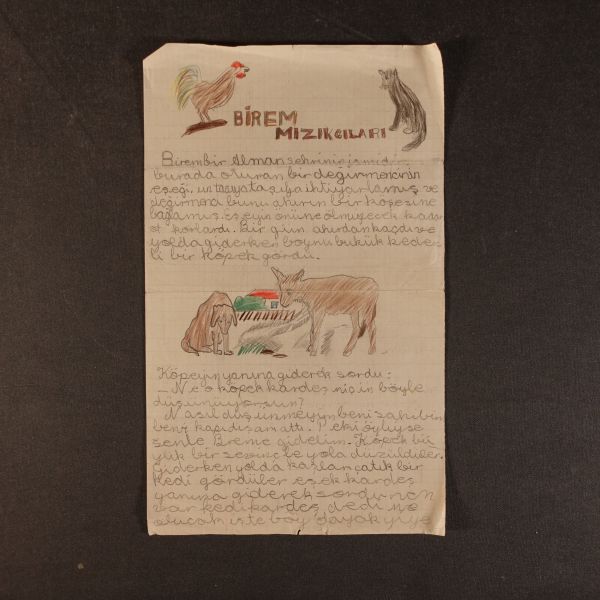 BİREM
MIZIKCILARI
Birem bir Alman şehrinin ismidir.
burada oturan bir değirmencinin
eşeği, un taşıya taşıya ihtiyarlamış ve
değirmenci bunu ahırın bir köşesine
bağlamış. eşeyin önüne ölmüyecek kadar
ot korlardı. Bir gün ahırdan kaçdı ve
yolda giderken boynu bükük keder
li bir köpek gördü.
Köpeyin yanına giderek sordu:
– Ne o köpek kardeş niçin böyle
düşünüyorsun?
Nasıl düşünmeyeyim beni sahibim
beni kapıdışarı attı. Peki öyleyse
senle Breme gidelim. Köpek bü
yük bir sevinçle yola düzüldüler.
Giderken yolda kaşları çatık bir
kedi gördüler eşek kardeş
yanına giderek sordu nen
var kedi kardeş dedi ne
olucak işte böy dayak yiye